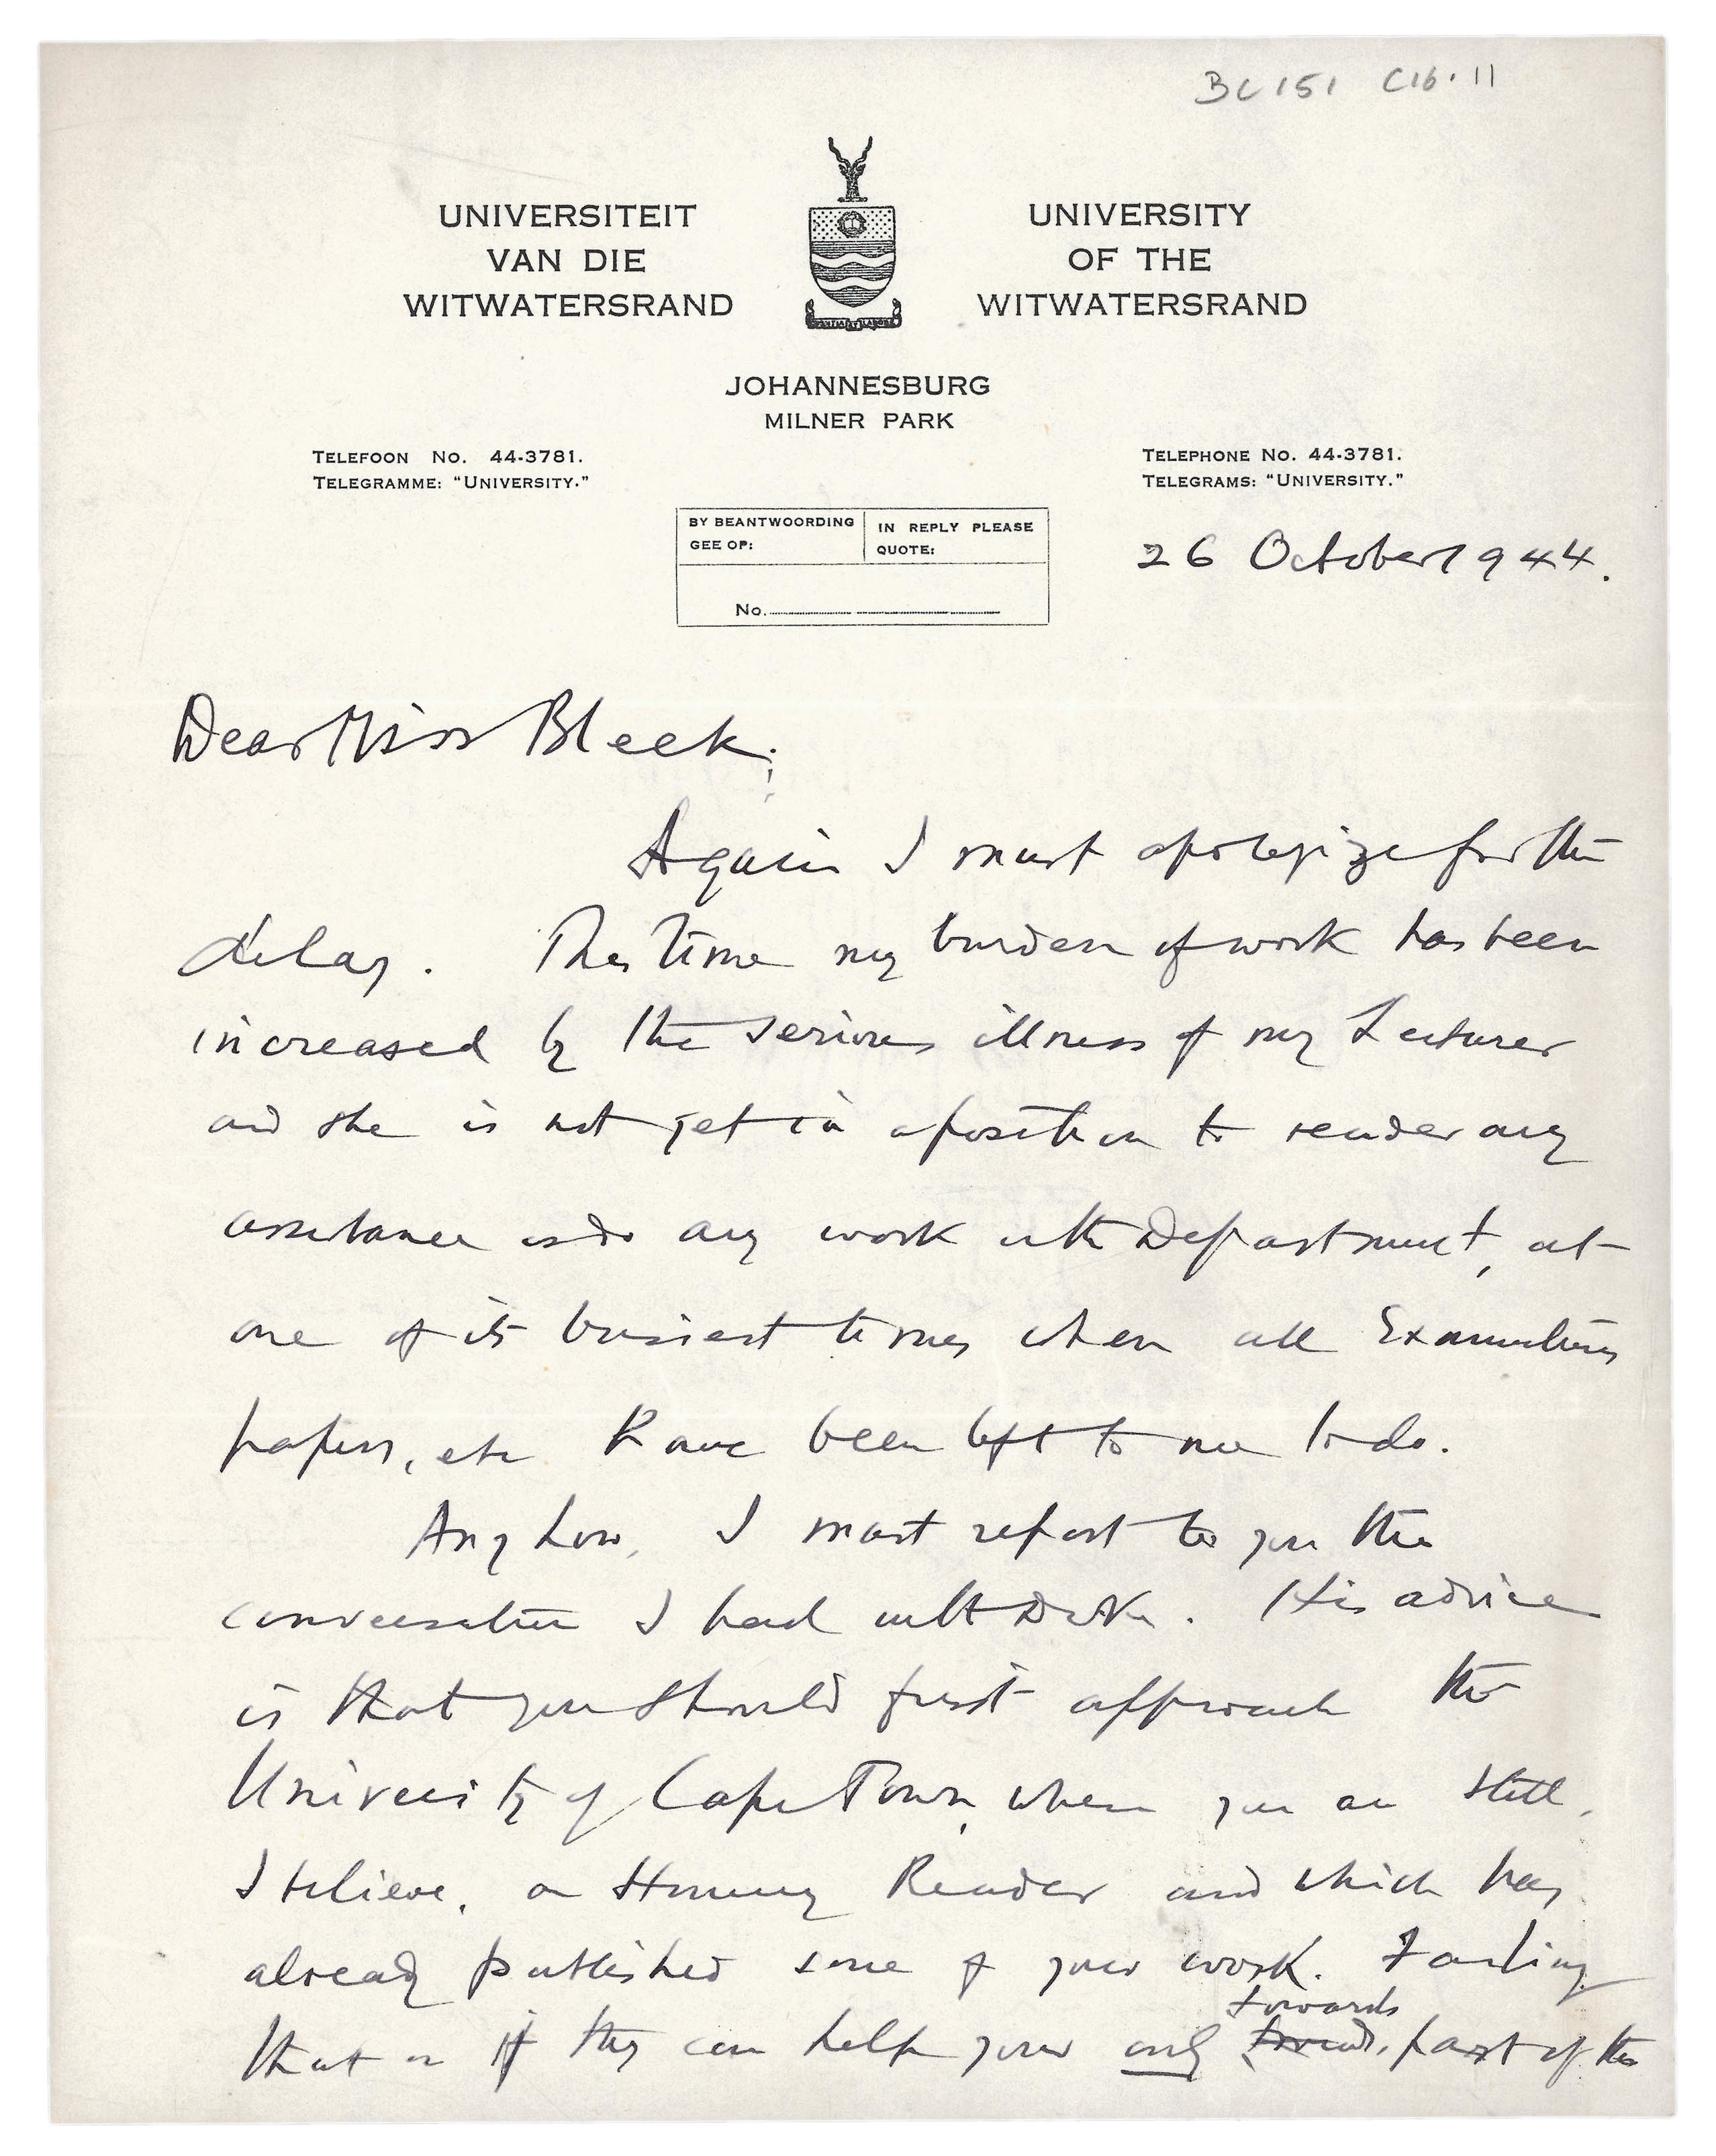 BC 151 C16.11
UNIVERSITEIT
VAN DIE
WITWATERSRAND
UNIVERSITY
OF THE
WITWATERSRAND
JOHANNESBURG
MILNER PARK
TELEFOON No. 44-3781.
TELEGRAMME: "UNIVERSITY."
TELEPHONE No. 44-3781.
TELEGRAMS: "UNIVERSITY."
BY BEANTWOORDING
GEE OP:
IN REPLY PLEASE
QUOTE:
No.
26 October 1944.
Dear Miss Bleek,
Again I must apologize for the
delay. This time my burden of work has been
increased by the serious illness of my Lecturer
and she is not yet in a position to render any
assistance or do any work in the Department, at
one of its busiest times when all Examination
papers, etc have been left to me to do.
Anyhow, I must report to you the
conversation I had with . His advice
is that you should first approach the
University of Cape Town, where you are still,
I believe, an Honorary Reader and which has
already published some of your work. Failing
that or if they can help you only towards part of the